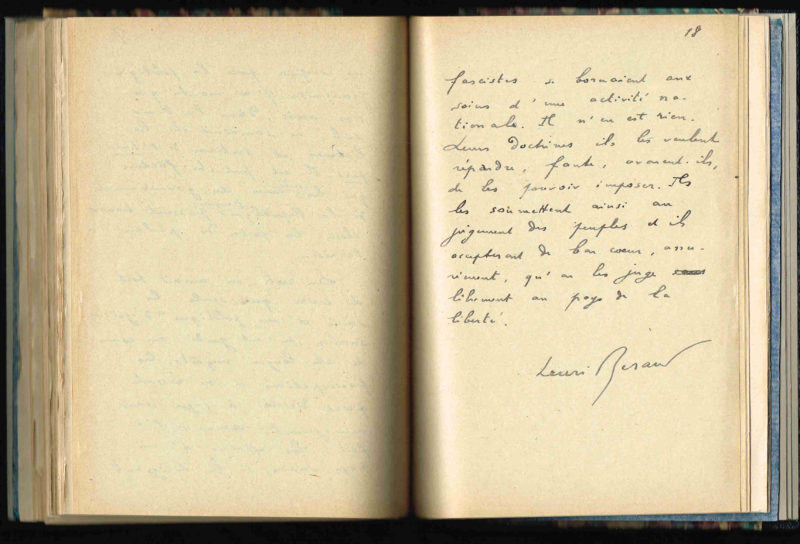 18
fascistes se bornaient aux
soins d'une activité na-
tionale. Il n'en est rien.
Leurs doctrines ils les veulent
répandre, faute, avouent-ils,
de les pouvoir imposer. Ils
les soumettent ainsi au
jugement des peuples et ils
accepteront de bon coeur, assu-
rément, qu'on les juge
librement au pays de la
liberté.
Henri Béraud